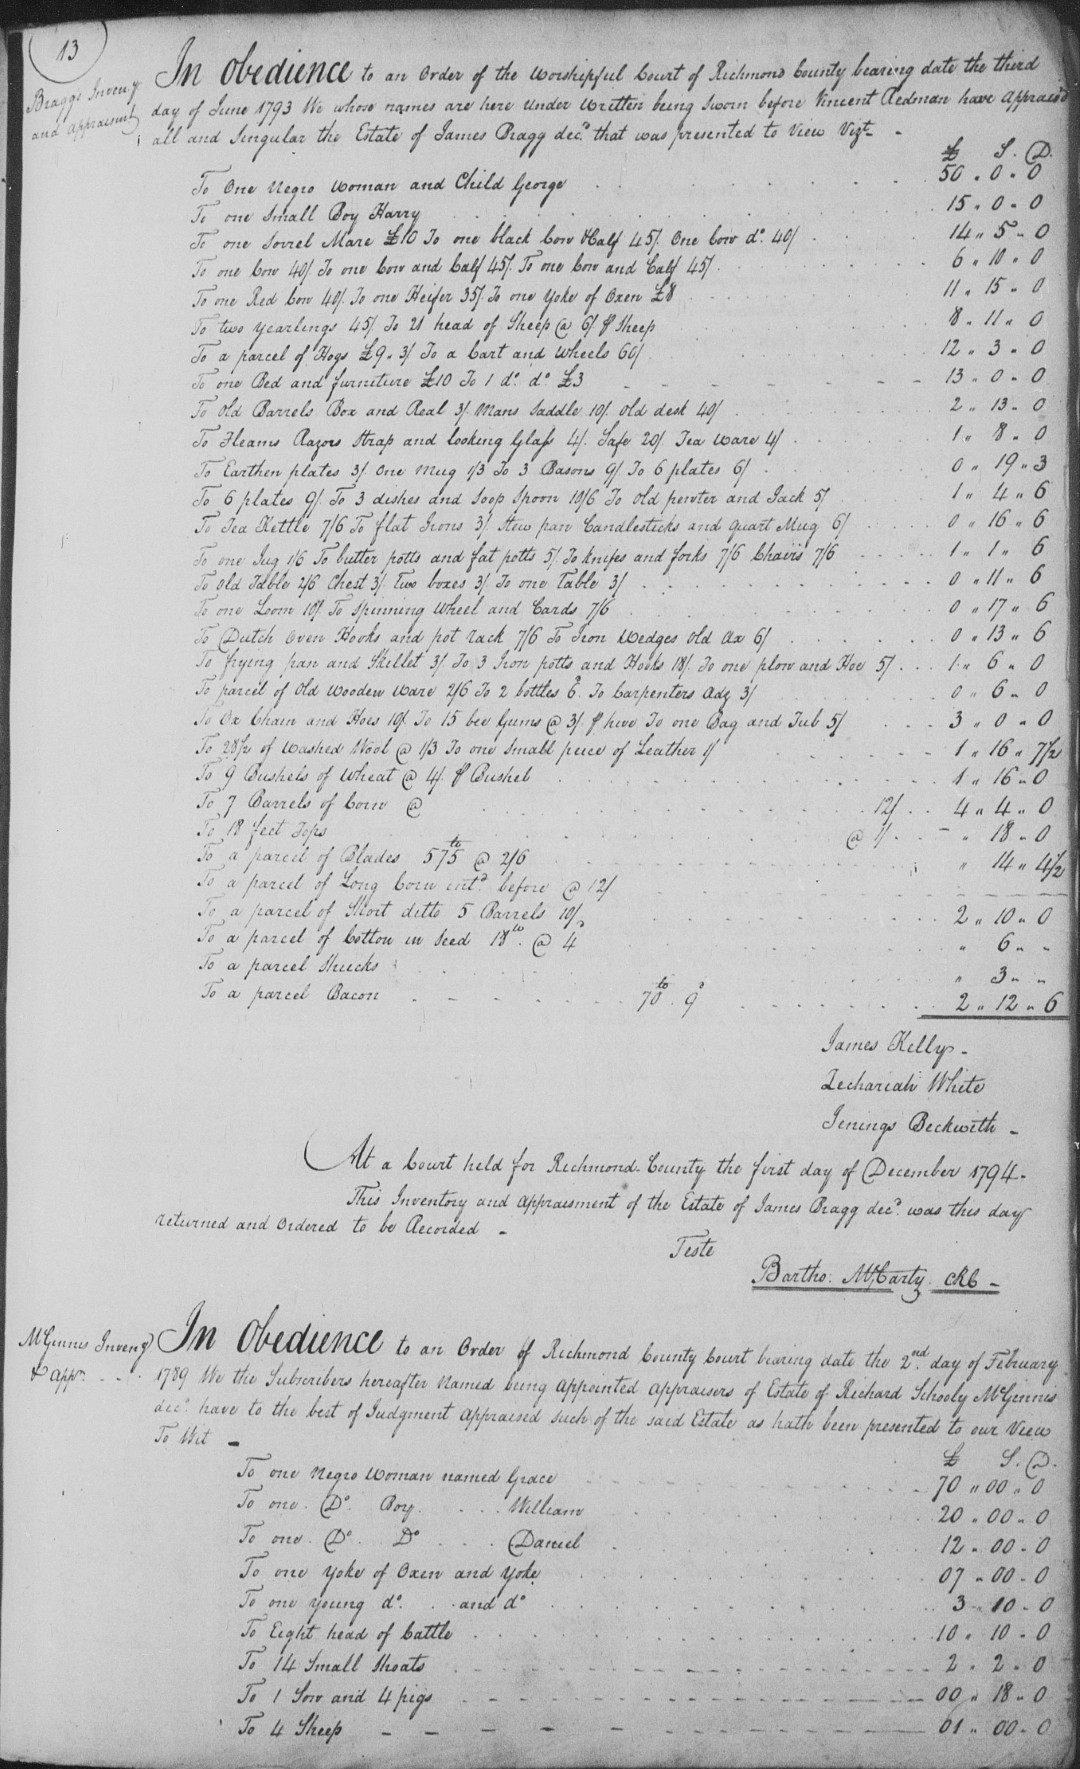 13
Braggs Inven'y
and appraismt
In Obedience to an Order of the Worshipful Court of Richmond County bearing date the third
day of June 1793 We whose names are here under written being sworn before Vincent Redman have appraised
all and Singular the Estate of James Bragg decd. that was presented to View Vizt -
£ S. D.
To One Negro Woman and Child George 50 „ 0 „ 0
To one Small Boy Harry 15 „ 0 „ 0
To one Sorrel Mare £10 To one black Cow & Calf 45/. One Cow do. 40/ 14 „ 5 „ 0
To one Cow 40/. To one Cow and Calf 45/. To one Cow and Calf 45/. 6 „ 10 „ 0
To one Red Cow 40/. To one Heifer 35/. To one Yoke of Oxen £8 11 „ 15 „ 0
To two Yearlings 45/. To 21 head of Sheep @ 6/. ⅌ Sheep 8 „ 11 „ 0
To a parcel of Hogs £9 „ 3/ To a Cart and Wheels 60/ 12 „ 3 „ 0
To one Bed and furniture £10 To 1 do. do. £3 13 „ 0 „ 0
To Old Barrels Box and Real 3/. Mans Saddle 10/. old desk 40/ 2 „ 13 „ 0
To Fleams Razors Strap and looking Glass 4/. Safe 20/. Tea Ware 4/ 1 „ 8 „ 0
To Earthen plates 3/. One Mug 1/3 To 3 Basons 9/ To 6 plates 6/ 0 „ 19 „ 3
To 6 plates 9/ To 3 dishes and Soop Spoon 10/6 To old pewter and Jack 5/ 1 „ 4 „ 6
To Tea Kettle 7/6 To flat Irons 3/. Stew pan Candlesticks and quart Mug 6/ 0 „ 16 „ 6
To one Jug 1/6 To butter potts and fat potts 5/. To knifes and forks 7/6 Chairs 7/6 1 „ 1 „ 6
To Old Table 2/6 Chest 3/. two boxes 3/. To one Table 3/ 0 „ 11 „ 6
To one Loom 10/. To Spinning Wheel and Cards 7/6 0 „ 17 „ 6
To Dutch Oven Hooks and pot rack 7/6 To Iron Wedges old Ax 6/ 0 „ 13 „ 6
To frying pan and Skillet 3/. To 3 Iron potts and Hooks 18/. To one plow and Hoe 5/ 1 „ 6 „ 0
To parcel of Old Wooden Ware 2/6 To 2 bottles 6d. To Carpenters Adz 3/ 0 „ 6 „ 0
To Ox Chain and Hoes 10/. To 15 bee Gums @ 3/. ⅌ hive To one Bag and Tub 5/ 3 „ 0 „ 0
To 28½ of Washed Wool @ 1/3 To one Small piece of Leather 1/ 1 „ 16 „ 7½
To 9 Bushels of Wheat @ 4/. ⅌ Bushel 1 „ 16 „ 0
To 7 Barrels of Corn @ 12/ 4 „ 4 „ 0
To 18 feet Tops @ 1/ „ 18 „ 0
To a parcel of Blades 575 lb @ 2/6 „ 14 „ 4½
To a parcel of Long Corn entd. before @ 12/
To a parcel of Short ditto 5 Barrels 10/ 2 „ 10 „ 0
To a parcel of Cotton in Seed 18 lb. @ 4 „ 6 „ „
To a parcel Shucks „ 3 „ „
To a parcel Bacon 70 lb. 9d 2 „ 12 „ 6
James Kelly -
Zechariah White
Jenings Beckwith -
At a Court held for Richmond County the first day of December 1794 -
This Inventory and appraisment of the Estate of James Bragg decd. was this day
returned and Ordered to be Recorded -
Teste
Bartho: McCarty. CRC -
McGinnis Inven'y
& appr.
In Obedience to an Order of Richmond County Court bearing date the 2nd. day of February
1789 We the Subscribers hereafter Named being appointed appraisers of Estate of Richard Schooly McGinnis
decd. have to the best of Judgment appraised such of the said Estate as hath been presented to our View
To Wit -
£ S. D.
To one Negro Woman named Grace 70 „ 00 „ 0
To one. Do. Boy. William 20 „ 00 „ 0
To one. Do. Do. Daniel 12 „ 00 „ 0
To one Yoke of Oxen and Yoke 07 „ 00 „ 0
To one Young do. and do. 3 „ 10 „ 0
To Eight head of Cattle 10 „ 10 „ 0
To 14 Small Shoats 2 „ 2 „ 0
To 1 Sow and 4 pigs 00 „ 18 „ 0
To 4 Sheep 01 „ 00 „ 0